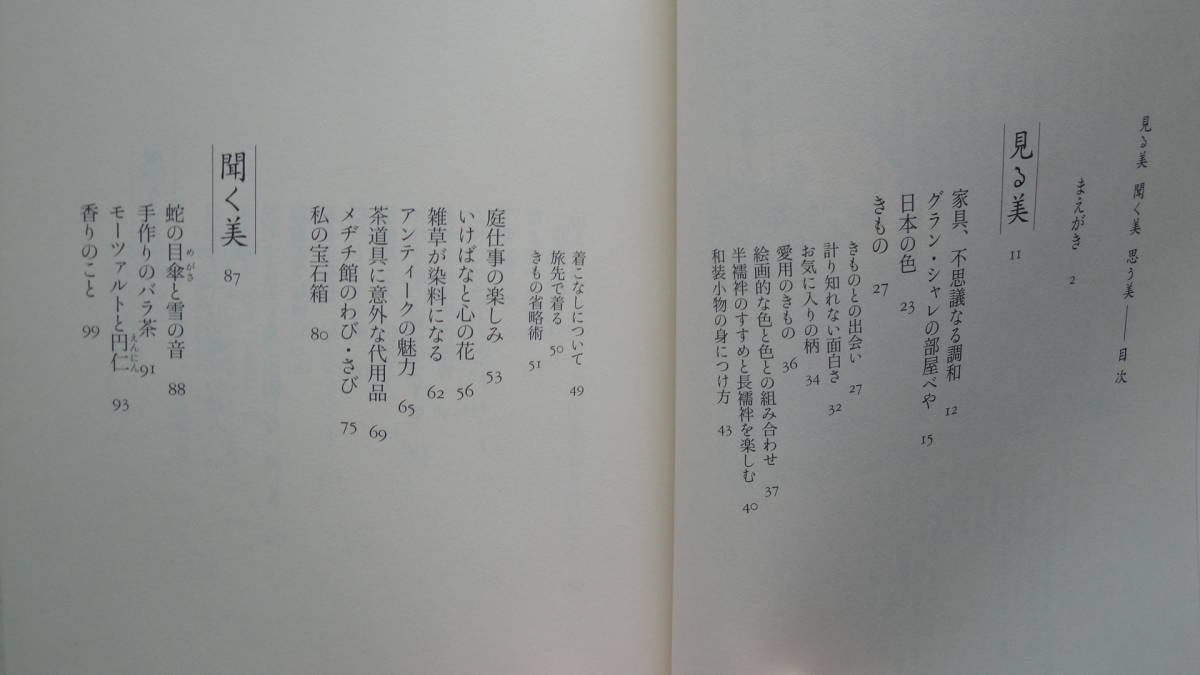 見る美 聞く美 思う美――目次
まえがき 2
見る美 11
家具、不思議なる調和 12
グラン・シャレの部屋べや 15
日本の色 23
きもの 27
きものとの出会い 27
計り知れない面白さ 32
お気に入りの柄 34
愛用のきもの 36
絵画的な色と色との組み合わせ 37
半襦袢のすすめと長襦袢を楽しむ 40
和装小物の身につけ方 43
着こなしについて 49
旅先で着る 50
きもの省略術 51
庭仕事の楽しみ 53
いけばなと心の花 56
雑草が染料になる 62
アンティークの魅力 65
茶道具に意外な代用品 69
メヂチ館のわび・さび 75
私の宝石箱 80
聞く美 87
蛇の目傘と雪の音 88
めがさ
手作りのバラ茶 91
モーツァルトと円仁 93
えんにん
香りのこと 99